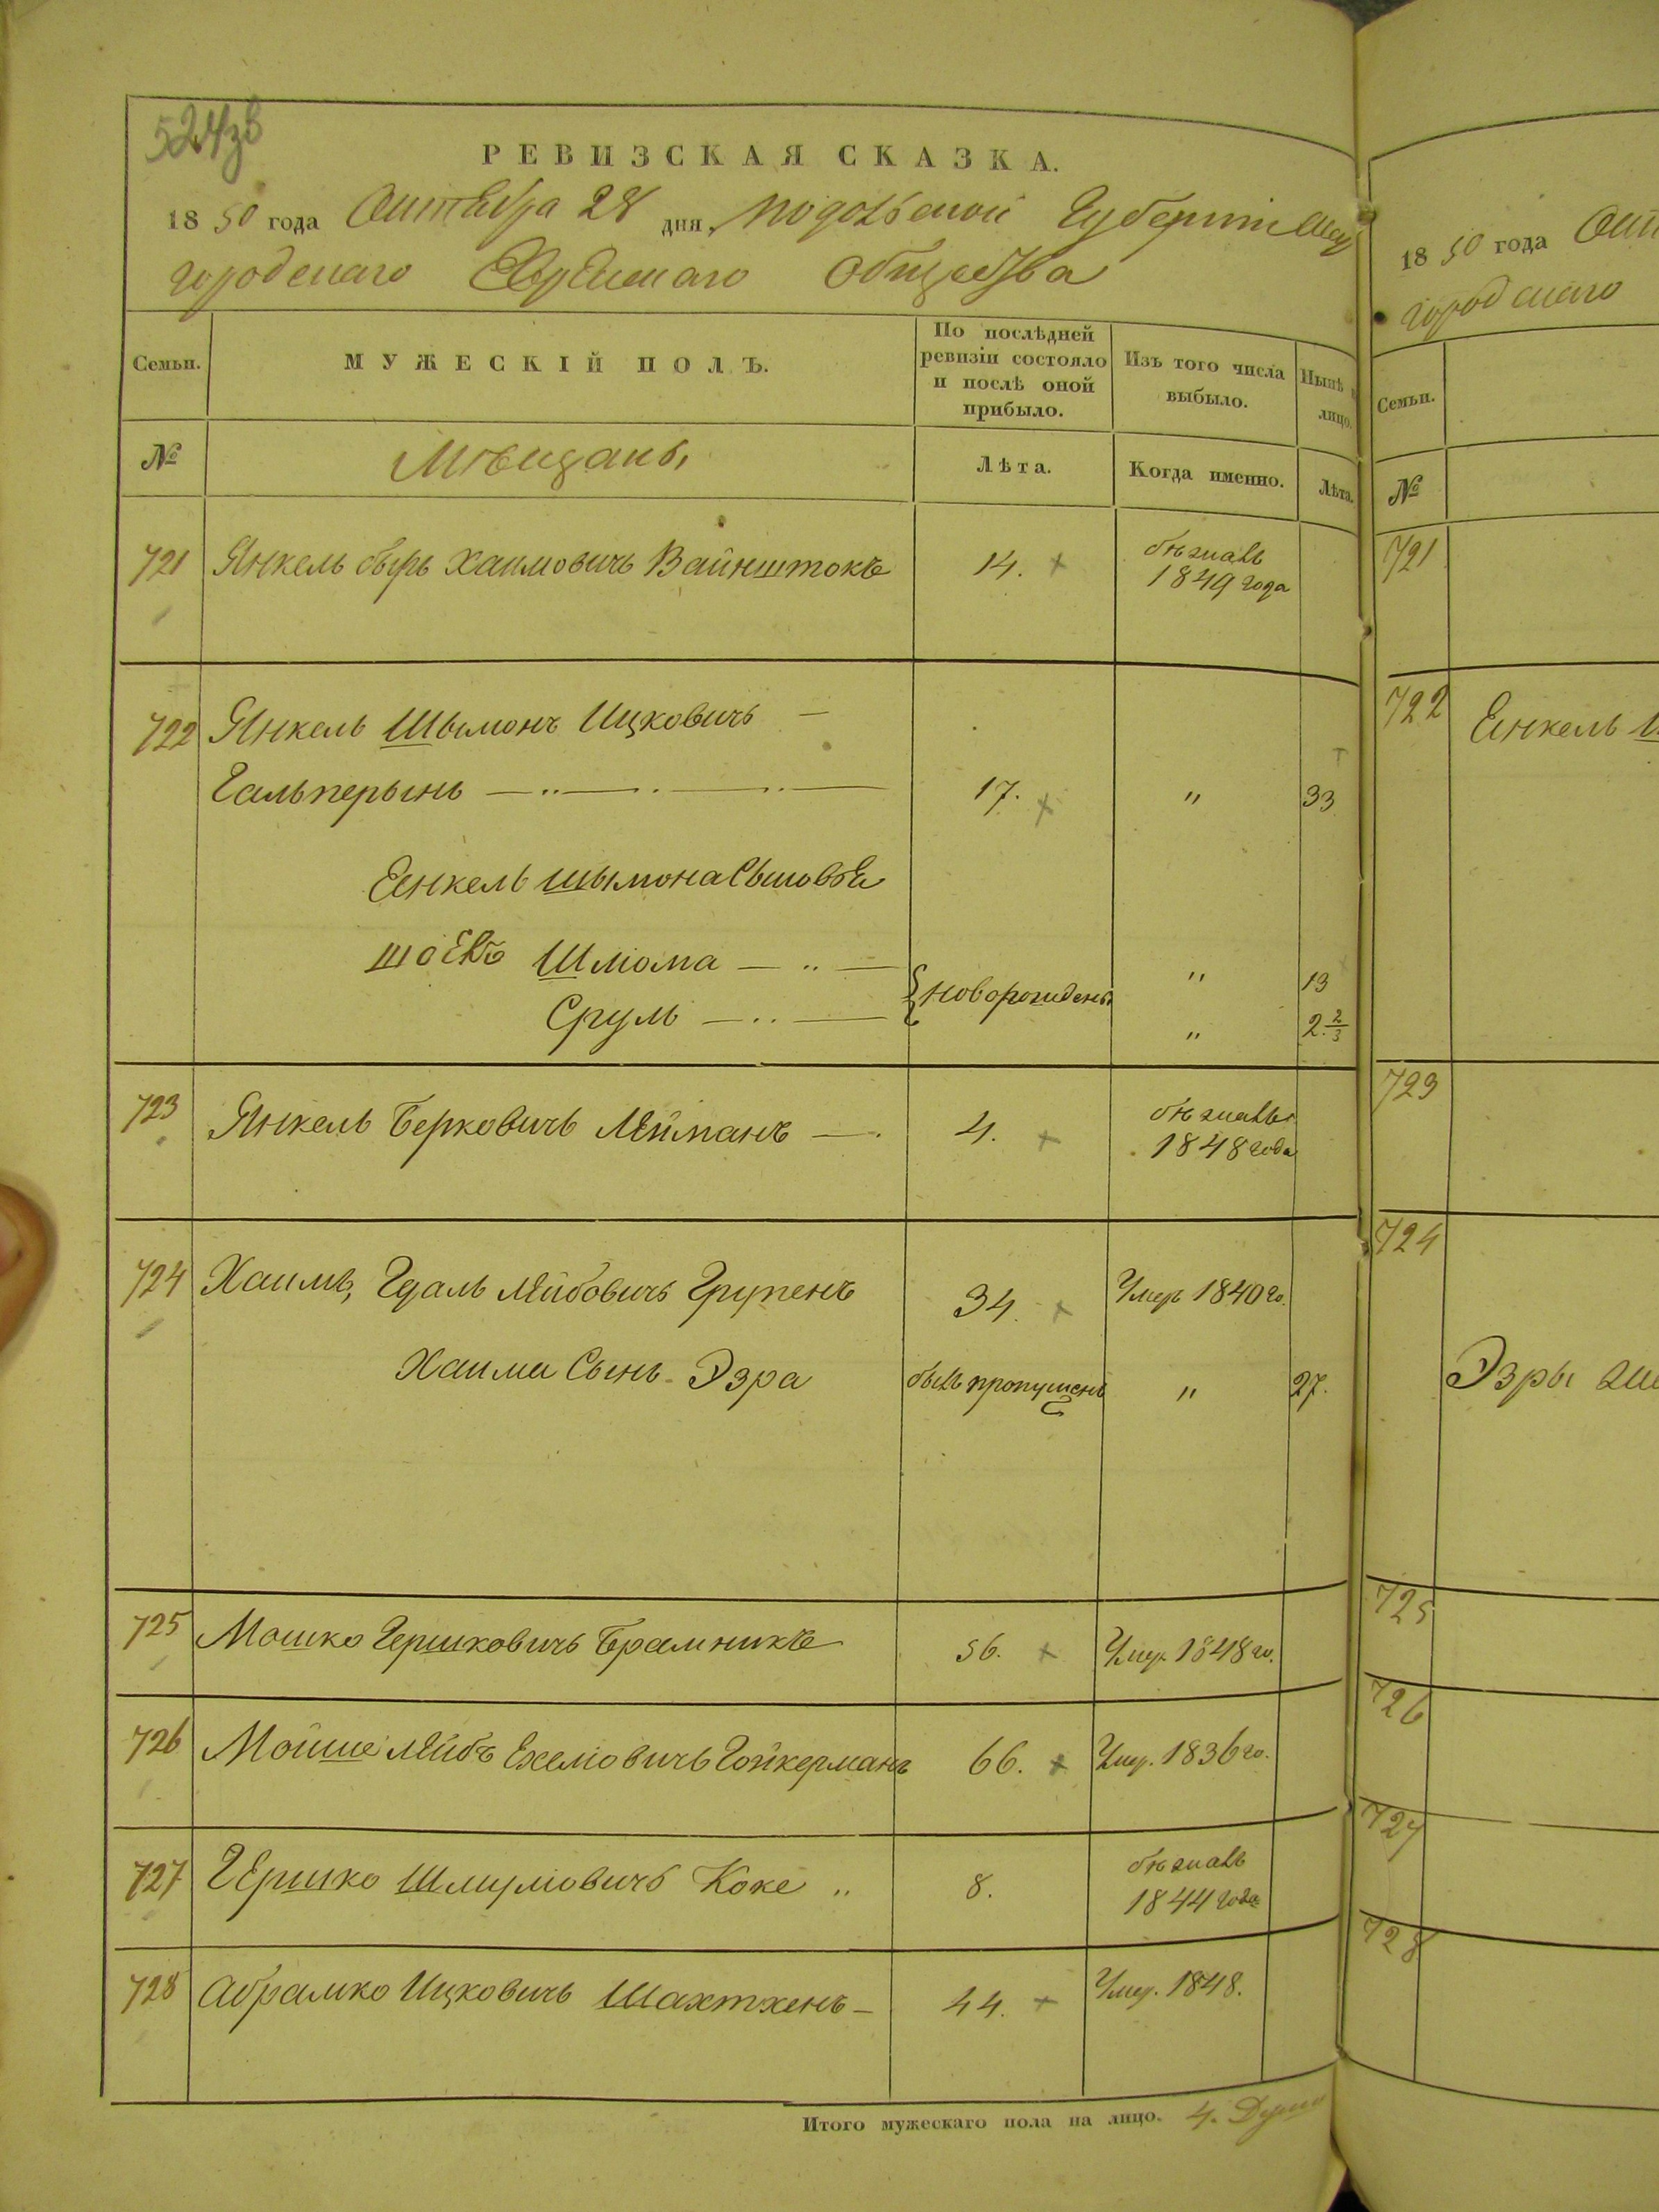 524зв
РЕВИЗСКАЯ СКАЗКА.
1850 года Октября 28 дня, Подольской Губерніи
городскаго Еврейскаго Общества
Семьи.
МУЖЕСКІЙ ПОЛЪ.
По послѣдней ревизіи состояло и послѣ оной прибыло.
Изъ того числа выбыло.
Нынѣ
лицо.
№
Мѣщанъ,
Лѣта.
Когда именно.
Лѣта.
721 Янкель Хаимовичъ Вайнштокъ 14. × бѣжалъ
1849 года
722 Янкель Шымонъ Ицковичъ —
Гальперынъ 17. × " 33
Енкель Шымона Сыновья
Шлiома " 13
Новорожденъ
Срулъ " 2 2/3
723 Янкель Берковичъ Лейманъ —. 4. × бѣжалъ
1848 года
724 Хаимъ, Гдаль Лейбовичъ 34. × Умеръ 1840 го.
Хаима Сынъ Эзра былъ пропущенъ " 27.
725 Мошко Гершковичъ Брамникъ 56. × Умер. 1848 го.
726 Мойше Лейбъ Гойкерманъ 66. × Умер. 1836 го.
727 Гершко Шлиуліовичъ Коке " 8. бѣжалъ
1844 года
728 Абрамко Ицковичъ Шахтхенъ — 44. × Умер. 1848.
Итого мужескаго пола на лицо. 4. Души
1850 года
городскаго
Семьи.
№
721
722 Енкель
723
724
Эзры
725
726
727
728